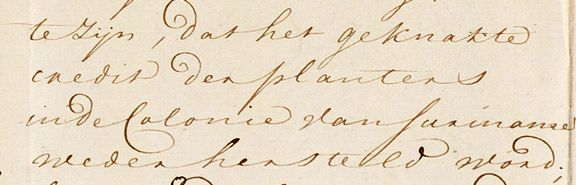 te zijn, dat het geknakte
credit der planters
in de Colonie van Suriname
weder hersteld word;